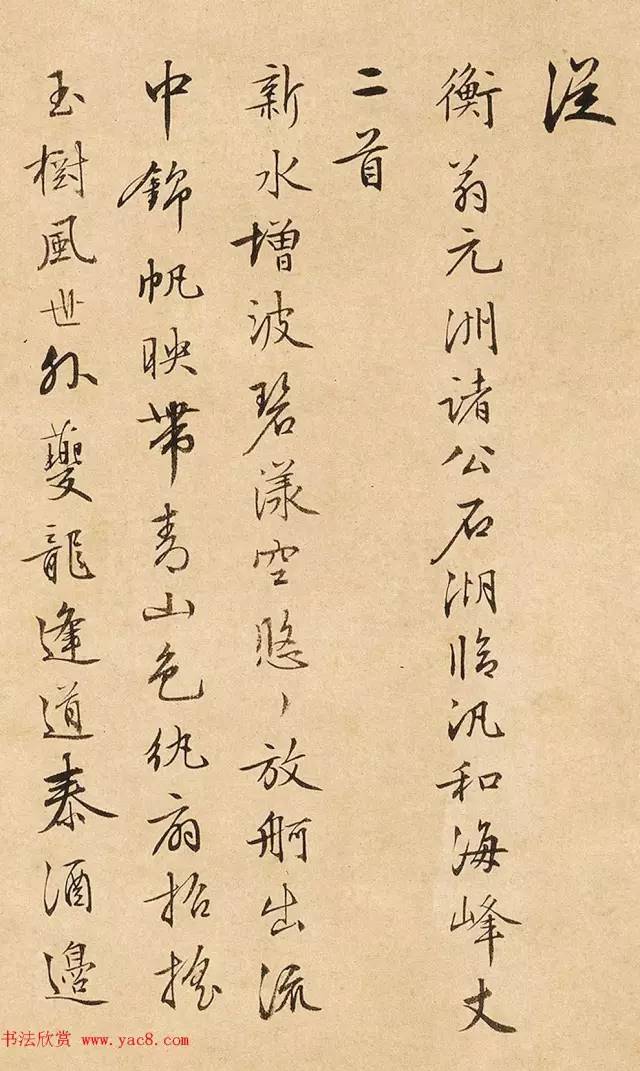 從
衡翁元洲諸公石湖臨汎和海峰丈
二首
新水增波碧漾空悠丶放舸出流
中錦帆映帶青山色紈扇招搖
玉樹風世外夔龍逢道泰酒邊
书法欣赏 www.yac8.com